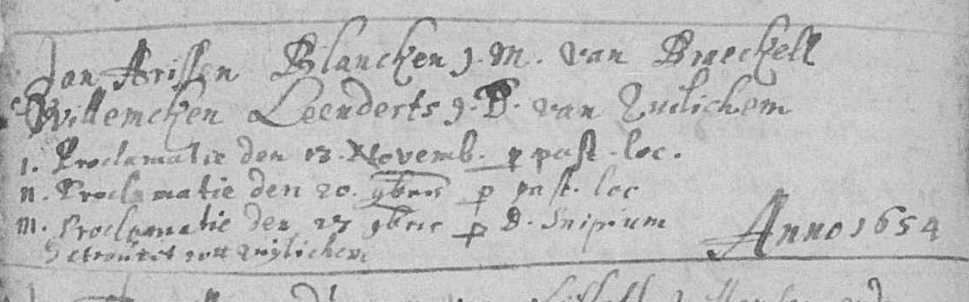 Jan Arissen Blancken J. M. van Braeckell
Willemcken Leenderts J. D. van Zuilichem
1. Proclamatie den 13. Novemb. p past. loc.
II. Proclamatie den 20. 9bris p past. loc
III. Proclamatie den 27 9bris p D. Snipium
Getrouwt tot Zuijlichem
Anno 1654